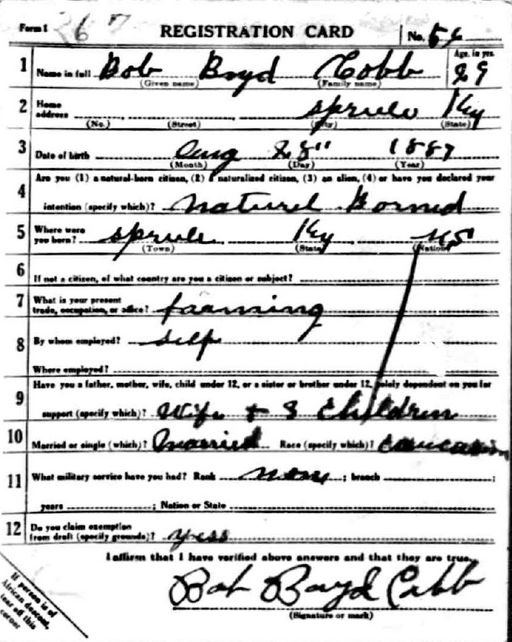 Form 1 REGISTRATION CARD No. 54
Age, in yrs.
1 Name in full Bob Boyd Cobb 29
(Given name) (Family name)
2 Home address Sprule Ky
(No.) (Street) (City) (State)
3 Date of birth Aug 28" 1887
(Month) (Day) (Year)
Are you (1) a natural-born citizen, (2) a naturalized citizen, (3) an alien, (4) or have you declared your
4 intention (specify which)? Naturel Borned
5 Where were you born? Sprule Ky US
(Town) (State) (Nation)
6 If not a citizen, of what country are you a citizen or subject?
7 What is your present trade, occupation, or office? faarming
8 By whom employed? Self
Where employed?
9 Have you a father, mother, wife, child under 12, or a sister or brother under 12, solely dependent on you for
support (specify which)? Wife + 3 Children
10 Married or single (which)? Married Race (specify which)? Caucasion
11 What military service have you had? Rank none ; branch ;
years ; Nation or State
12 Do you claim exemption from draft (specify grounds)? yess
I affirm that I have verified above answers and that they are true.
Bob Boyd Cobb
(Signature or mark)
If person is of
African descent,
tear off this
corner